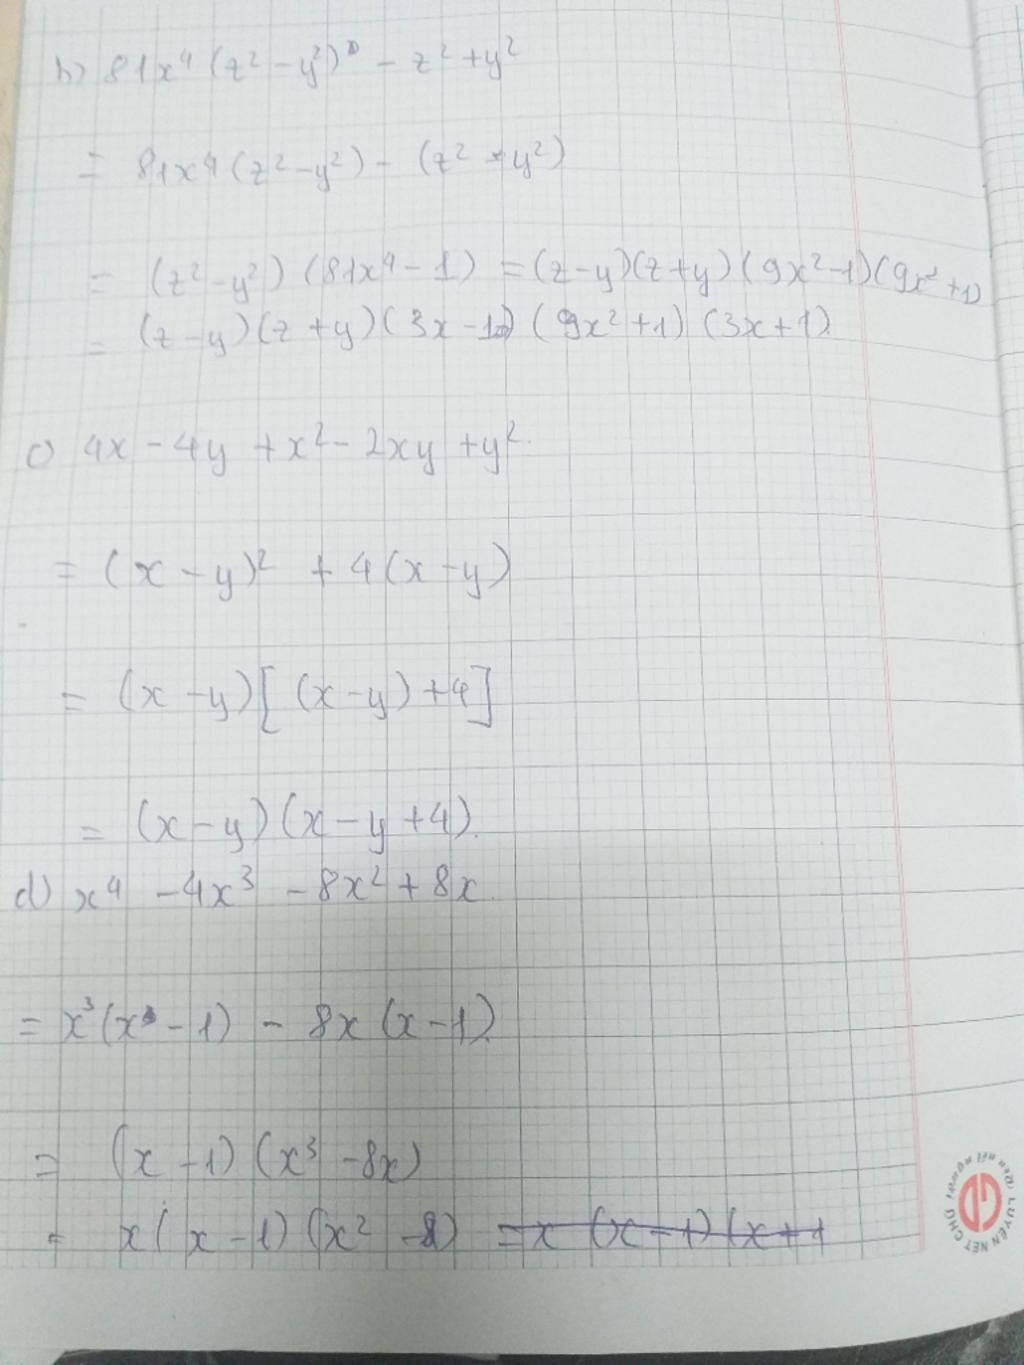 b) 81x⁴ (z² - y²) - z² + y²
= 81x⁴ (z² - y²) - (z² - y²)
= (z² - y²) (81x⁴ - 1) = (z - y)(z + y) (9x² - 1)(9x² + 1)
= (z - y)(z + y)(3x - 1) (9x² + 1) (3x + 1)
c) 4x - 4y + x² - 2xy + y².
= (x - y)² + 4(x - y)
= (x - y)[(x - y) + 4]
= (x - y)(x - y + 4).
d) x⁴ - 4x³ - 8x² + 8x.
= x³(x - 1) - 8x (x - 1).
= (x - 1) (x³ - 8x)
= x(x - 1) (x² - 8) = x (x - 1) (x + 1
LUYỆN NÉT CHỮ